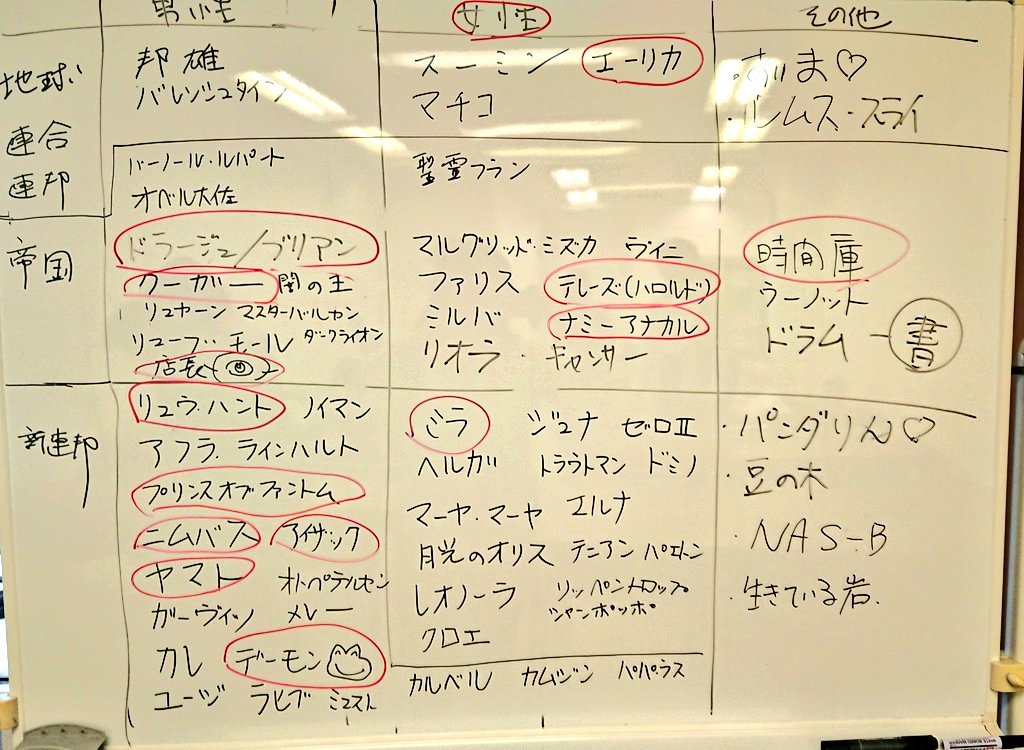 男性 女性 その他
地球
連合
連邦
邦雄
バレンシュタイン
スーミン エーリカ
マチコ
・ま♡
・ルムス・スライ
バーノール・ルパート
オベル大佐
聖霊フラン
帝国
ドラージュ/ブリアン
クーガー 闇の王
リュヤーン マスターバルカン
リューブ・モール ダークライオン
店長
マルグリッド・ミズカ ヴィニ
ファリス テレーズ(ハロルド)
ミルバ ナミーアナカル
リオラ・ギャンサー
時間庫
ラーノット
ドラム 書
新連邦
リュウ・ハント ノイマン
アフラ・ラインハルト
プリンスオブファントム
ニムバス アイザック
ヤマト オトペテルセン
ガーヴィッ メレー
カレ デーモン
ユージ ラヒブ
ミラ ジュナ ゼロⅡ
ヘルガ トラウトマン ドミノ
マーヤ・マーヤ エルナ
月光のオリス テニアン パエトン
レオノーラ リッペントロップ
シャンポッポ
クロエ
カルベル カムジン パパラス
・パンダりん♡
・豆の木
・NAS-B
・生きている岩.